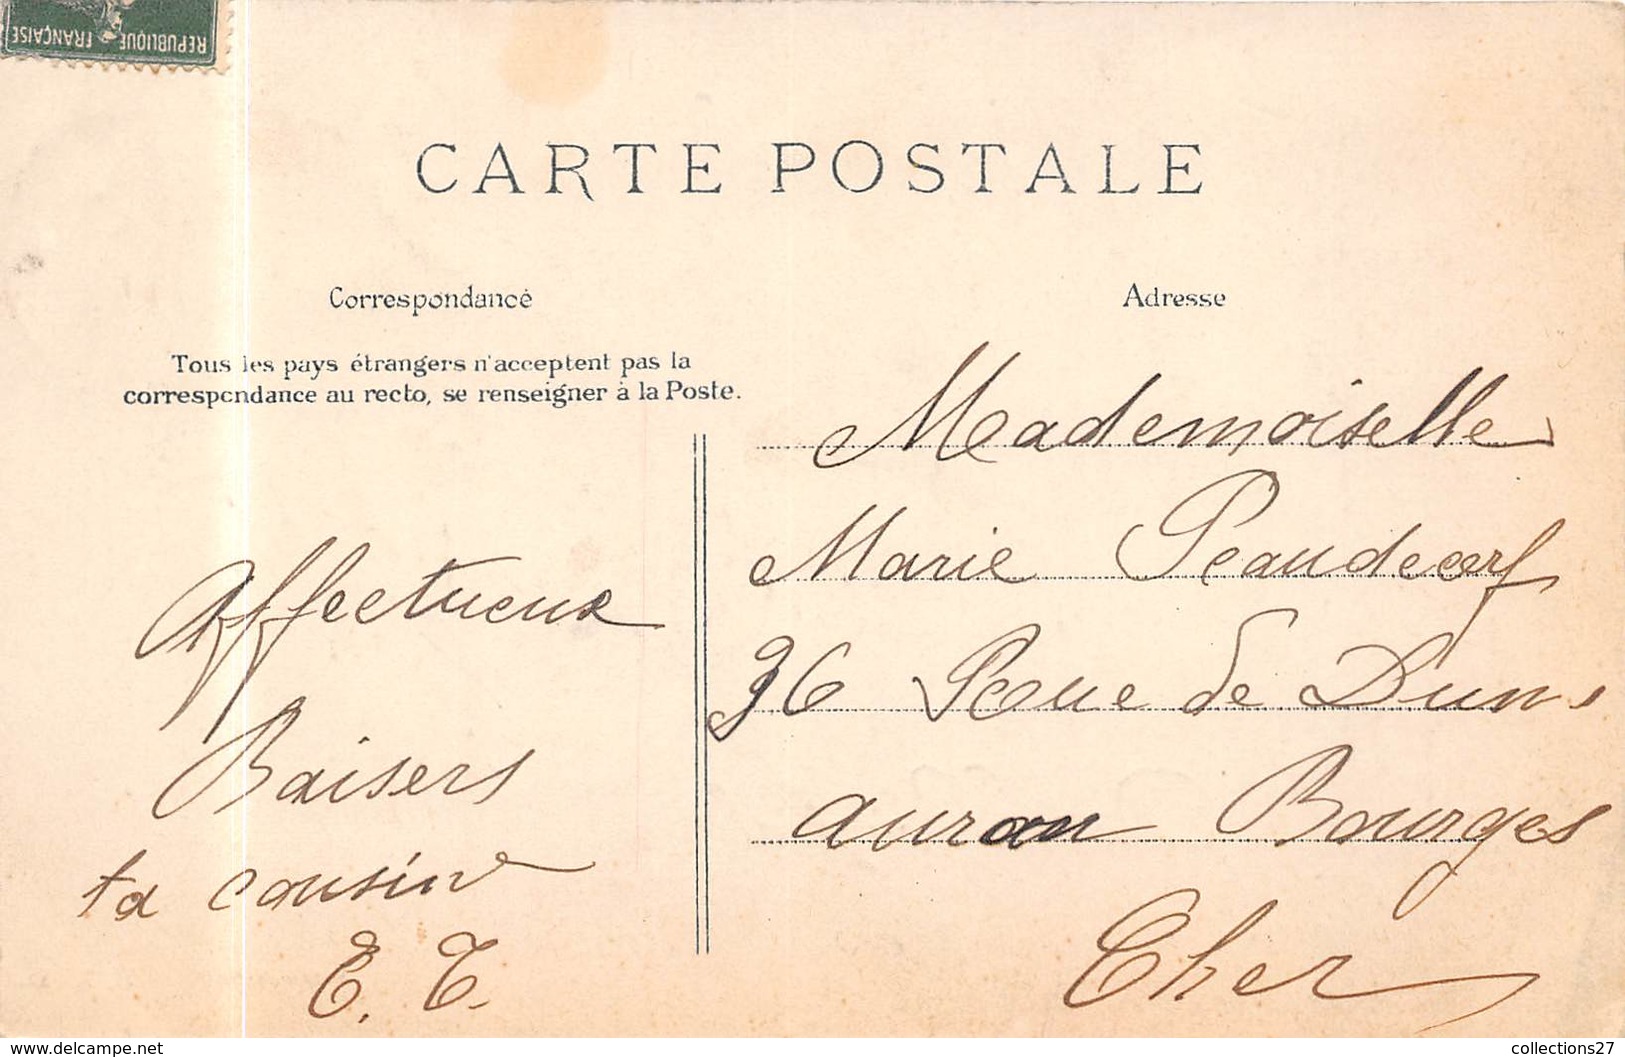 REPUBLIQUE FRANÇAISE
CARTE POSTALE
Correspondance
Tous les pays étrangers n'acceptent pas la
correspondance au recto, se renseigner à la Poste.
Affectueux
Baisers
ta cousine
E. T.
Adresse
Mademoiselle
Marie Peaudecerf
36 Rue de Dun
auron Bourges
Cher
www.delcampe.net
collections27